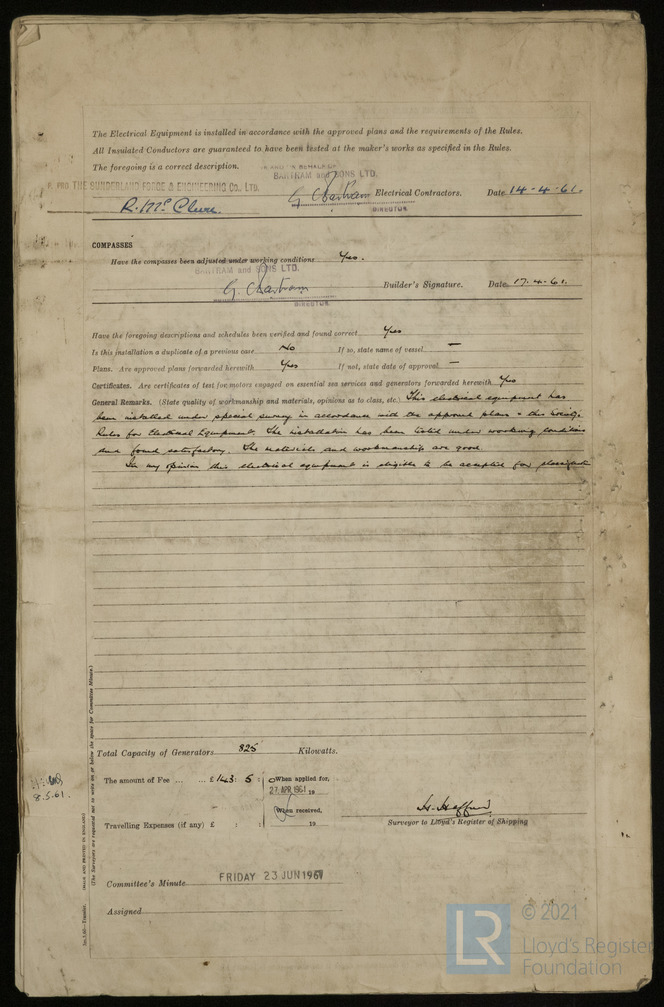 The Electrical Equipment is installed in accordance with the approved plans and the requirements of the Rules.
All Insulated Conductors are guaranteed to have been tested at the maker's works as specified in the Rules.
The foregoing is a correct description.
BARTRAM and SONS LTD.
P. PRO THE SUNDERLAND FORGE & ENGINEERING Co., LTD.
R. McClure.
G. C. Bartram Electrical Contractors. Date 14-4-61.
DIRECTOR
COMPASSES
Have the compasses been adjusted under working conditions Yes.
BARTRAM and SONS LTD.
G. C. Bartram Builder's Signature. Date 17.4.61.
DIRECTOR
Have the foregoing descriptions and schedules been verified and found correct Yes
Is this installation a duplicate of a previous case No If so, state name of vessel —
Plans. Are approved plans forwarded herewith Yes If not, state date of approval —
Certificates. Are certificates of test for motors engaged on essential sea services and generators forwarded herewith Yes
General Remarks. (State quality of workmanship and materials, opinions as to class, etc.) This electrical equipment has
been installed under special survey in accordance with the approved plans
Rules for Electrical Equipment. The installation has been tested under working conditions
and found satisfactory. The materials and workmanship are good.
In my opinion this electrical equipment is eligible to be accepted for
Total Capacity of Generators 825 Kilowatts.
The amount of Fee ... ... £143: 5: When applied for,
27 APR 1961 19
When received,
Travelling Expenses (if any) £ : : 19
8.5.61.
Surveyor to Lloyd's Register of Shipping
Committee's Minute FRIDAY 23 JUN 1961
Assigned
(The Surveyors are requested not to write on or below the space for Committee Minute.)
(MADE AND PRINTED IN ENGLAND)
LR
© 2021
Lloyd's Register
Foundation